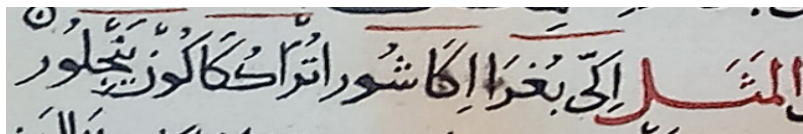 المَثَل اِكّى بُغرَا اِكَاشُور اُتْرَا كُكَاكُون يَنْجِلُور